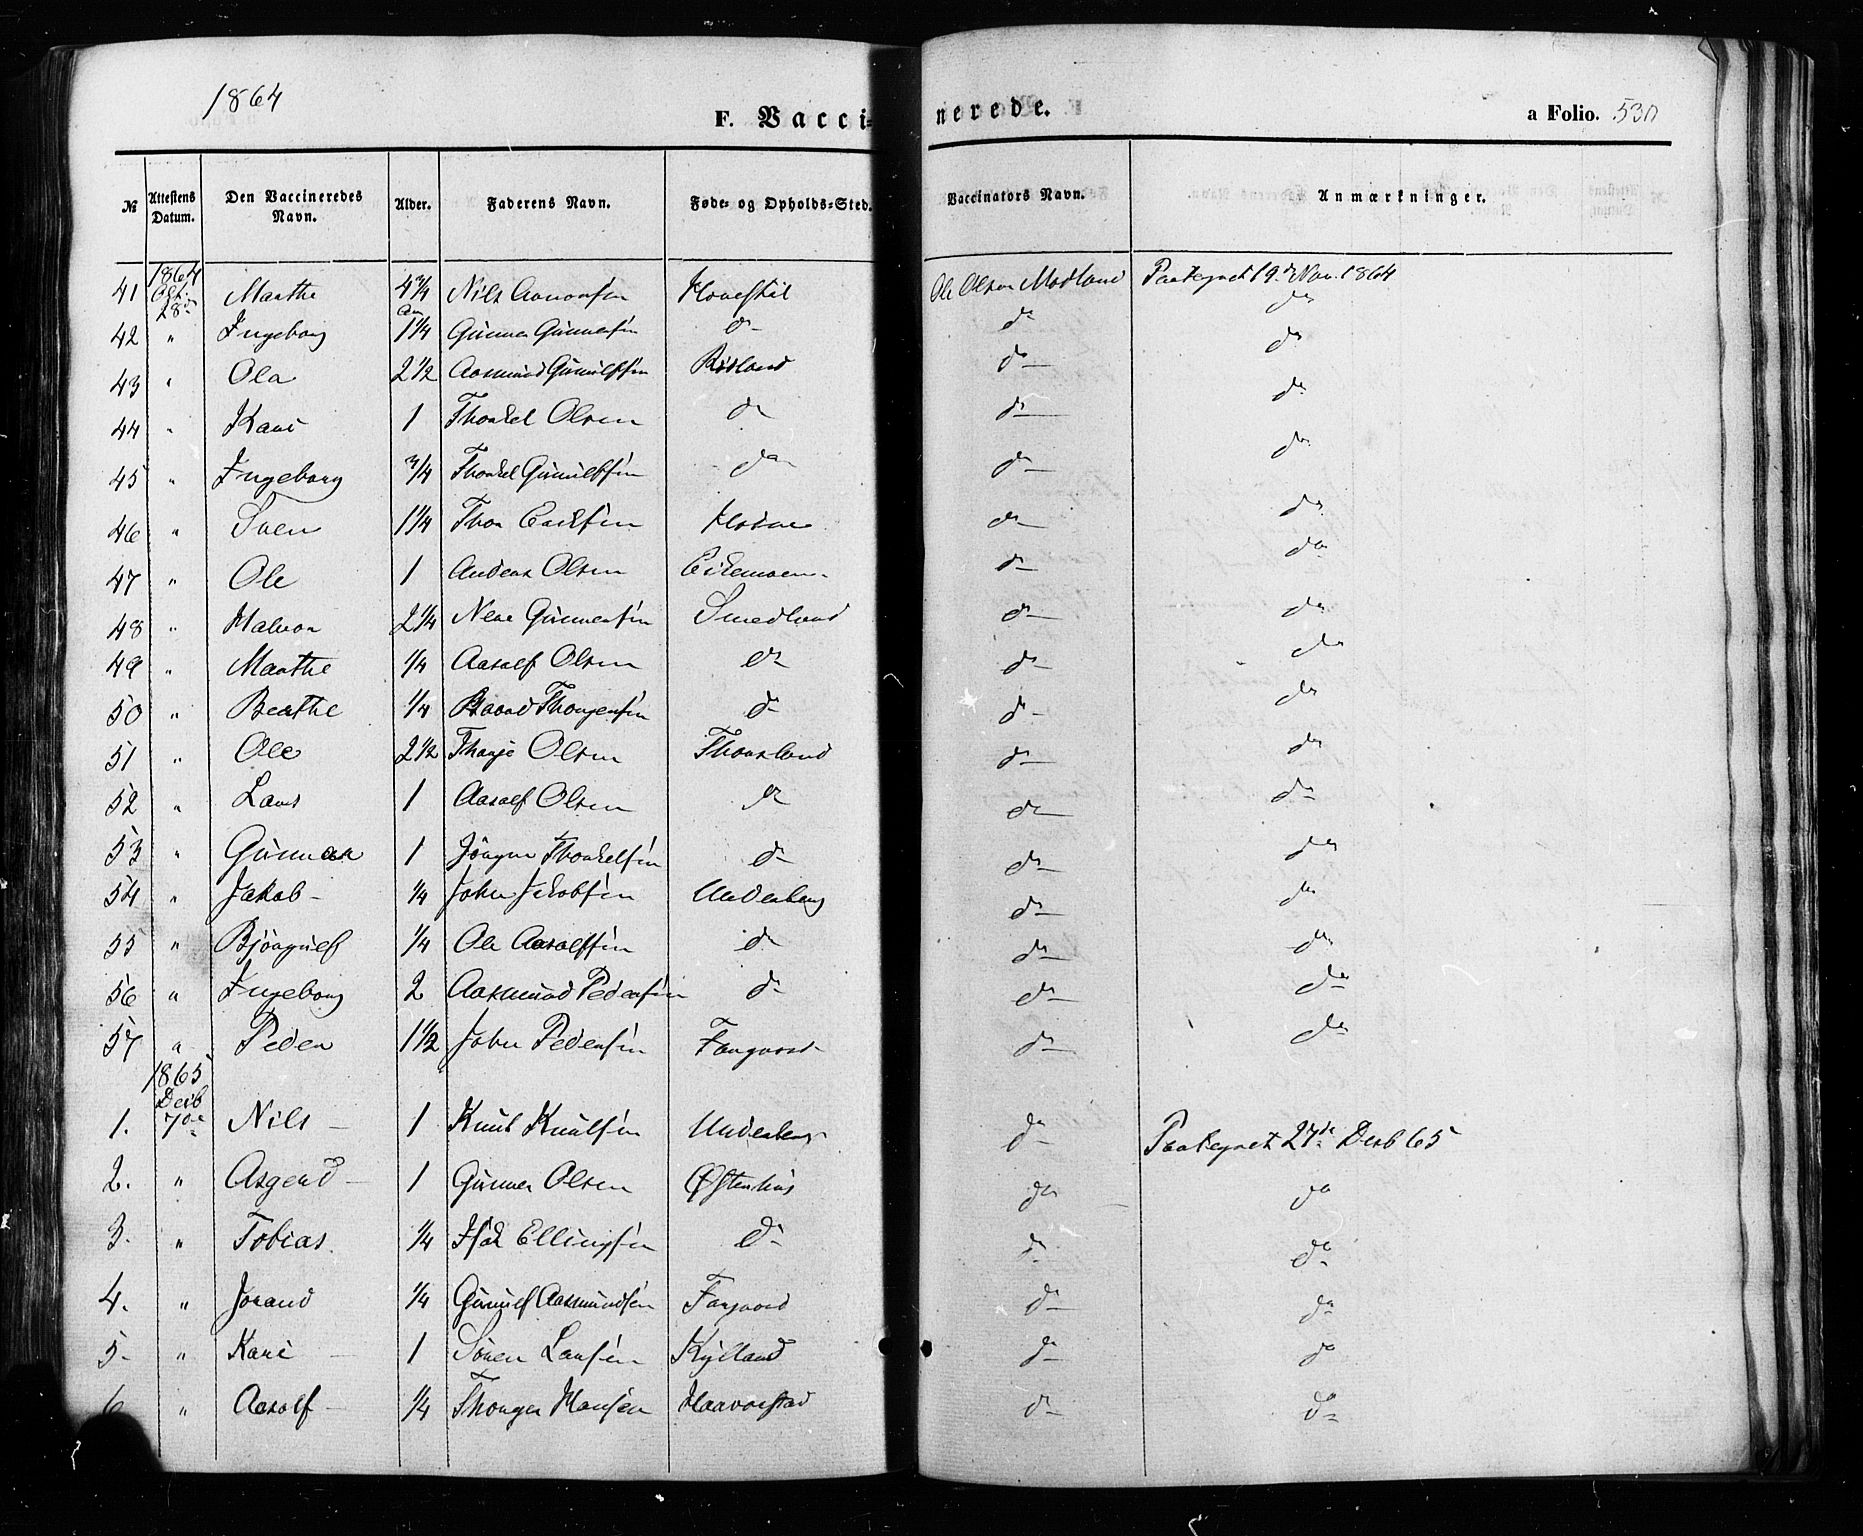 1864
F. Vaccinerede. a Folio. 530
№ Attestens Datum. Den Vaccineredes Navn. Alder. Faderens Navn. Føde- og Opholds-Sted. Vaccinators Navn. Anmærkninger.
41 1864 Oct. 28de Marthe 4 3/4 Aar Nils Hovestøl Ole Olsen Modland Paategnet 19de Nov. 1864
42 " Ingeborg 1 1/4 Gunner Gunnersen do do do
43 " Ola 2 1/2 Aasmund Gunulfsen Risland do do
44 " Kari 1 Thorkel Olsen do do do
45 " Ingeborg 3/4 Thorkel Gunulfsen do do do
46 " Sven 1 1/4 Thor do do
47 " Ole 1 Anders Olsen Eikemoen do do
48 " Halvor 2 1/4 Gunnersen Smedland do do
49 " Marthe 1/4 Aasolf Olsen do do do
50 " Berthe 1/4 Baard Thorgersen do do do
51 " Ole 2 1/2 Thorje Olsen Thorsland do do
52 " Lars 1 Aasolf Olsen do do do
53 " Gunnar 1 Jörgen Thorkelsen do do do
54 " Jakob - 1/4 John Jakobsen Underberg do do
55 " Björgulf 1/4 Ole Aasolfsen do do do
56 " Ingeborg 2 Aasmund Pedersen do do do
57 " Peder 1 1/2 John Pedersen Fargvord do do
1. 1865 Decb 7de Nils - 1 Knut Knutsen Underberg do Paategnet 27de Decb 65
2. " Asgerd - 1 Gunner Olsen Øftenhus do do
3. " Tobias. 1/4 Isak Ellingsen do do do
4. " Jorand 1/4 Gunulf Aasmundsen Fargvord do do
5. " Kari - 1 Sören Larsen Kylland do do
6 " Aasolf - 1/4 Thorger Hansen Haavorstad do do